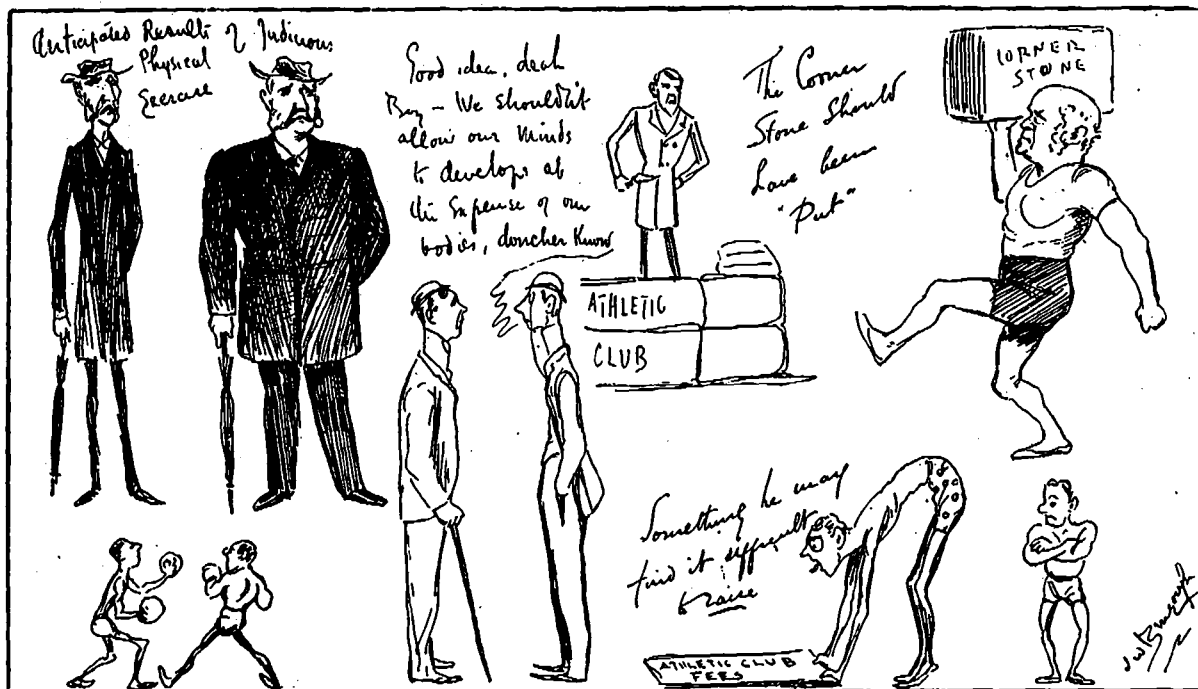 Anticipated Results of Judicious
Physical
Exercise
Good idea, deah
Boy - We shouldn't
allow our minds
to develope at
the Expense of our
bodies, doncher Know
ATHLETIC
CLUB
The Corner
Stone Should
have been
"Put"
CORNER
STONE
Something he may
find it difficult
to raise
ATHLETIC CLUB
FEES